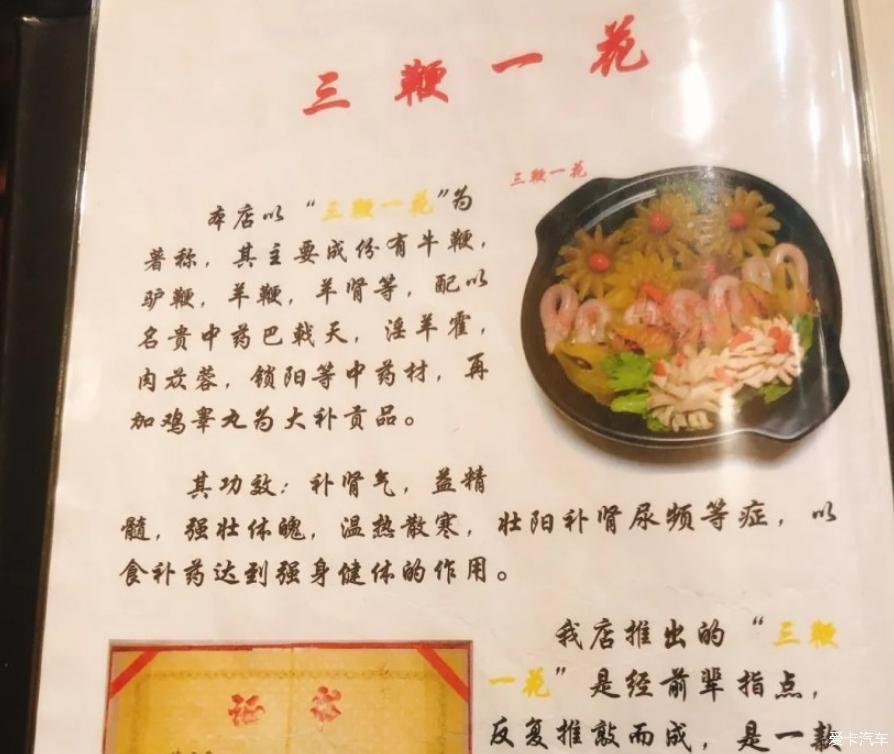 三鞭一花
三鞭一花
本店以“三鞭一花”为
著称，其主要成份有牛鞭，
驴鞭，羊鞭，羊肾等，配以
名贵中药巴戟天，淫羊霍，
肉苁蓉，锁阳等中药材，再
加鸡睾丸为大补贡品。
其功效：补肾气，益精
髓，强壮体魄，温热散寒，壮阳补肾尿频等症，以
食补药达到强身健体的作用。
我店推出的“三鞭
一花”是经前辈指点，
反复推敲而成，是一款
爱卡汽车